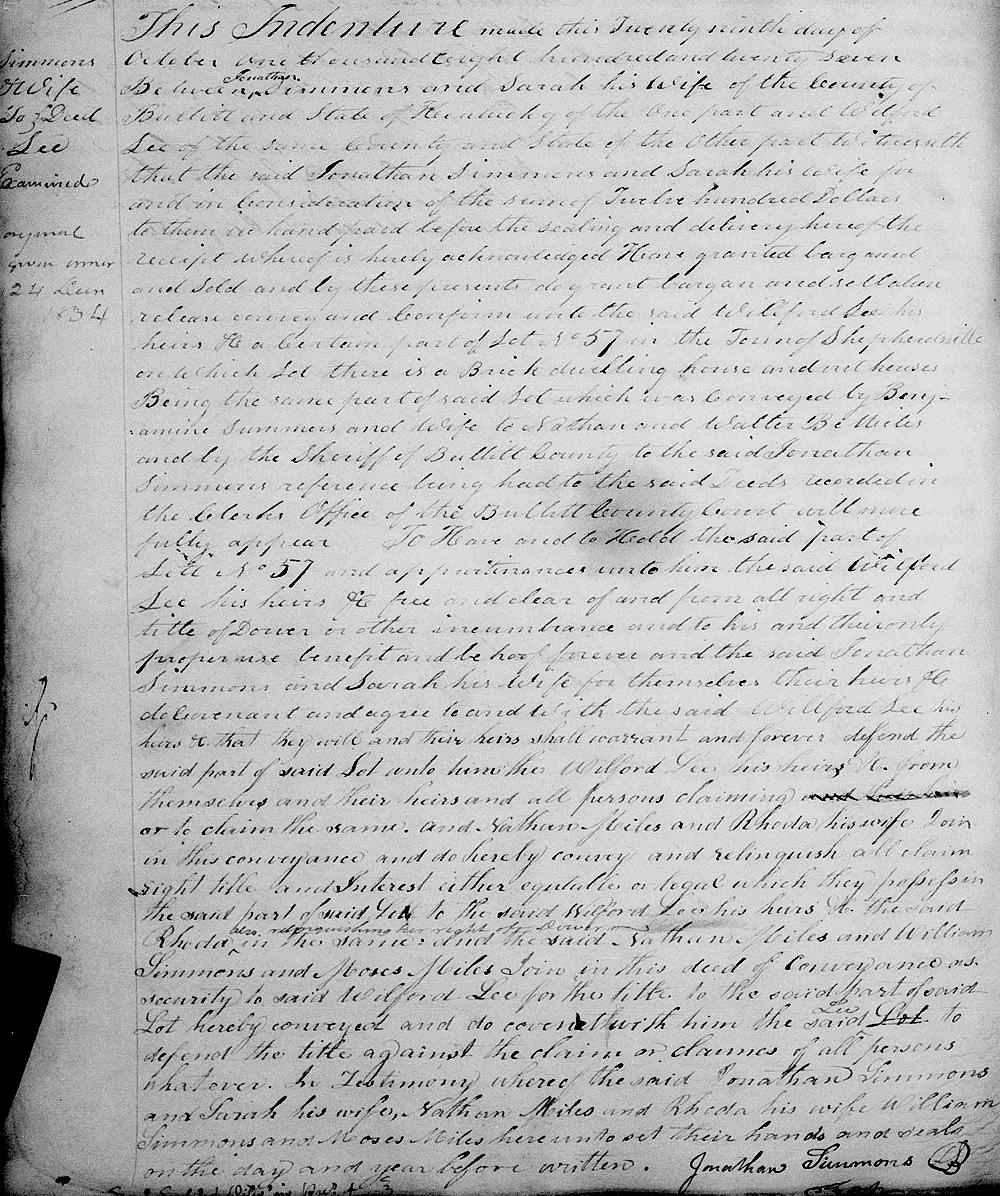 Simmons
& Wife
To } Deed
Lee
Examined
original
given owner
24 Jan
1834
This Indenture made this Twenty ninth day of
October One thousand eight hundred and twenty Seven
Between Jonathan Simmons and Sarah his Wife of the County of
Bullitt and State of Kentucky of the One part and Wilford
Lee of the same County and State of the Other part Witnesseth
that the said Jonathan Simmons and Sarah his Wife for
and in consideration of the sum of Twelve hundred Dollars
to them in hand paid before the sealing and delivery hereof the
receipt whereof is hereby acknowledged Have granted bargained
and Sold and by these presents do grant bargan and sell alien
release convey and Confirm unto the said Willford Lee his
heirs &c a Certain part of Lot No 57 in the Town of Shepherdsville
on which Lot there is a Brick dwelling house and out houses
Being the same part of said Lot which was Conveyed by Benj-
amine Summers and Wife to Nathan and Walter B Miles
and by the Sheriff of Bullitt County to the said Jonathan
Simmons reference being had to the said Deeds recorded in
the Clerks Office of the Bullitt County Court will more
fully appear To Have and to Hold the said part of
Lott No 57 and appurtinances unto him the said Wilford
Lee his heirs &c free and clear of and from all right and
title of Dower or other incumbrance and to his and their only
proper use benefit and behoof forever and the said Jonathan
Simmons and Sarah his Wife for themselves their heirs &c
do Covenant and agree to and With the said Willford Lee his
heirs &c that they will and their heirs shall warrant and forever defend the
said part of said Lot unto him the Wilford Lee his heirs &c. from
themselves and their heirs and all persons claiming
or to claim the same. And Nathan Miles and Rhoda his wife Join
in this conveyance and do hereby convey and relinquish all claim
right title and Interest either equitable or legal which they possess in
the said part of said Lot to the said Wilford Lee his heirs &c. the said
Rhoda also relinquishing her right of Dower in the same. And the said Nathan Miles and William
Simmons and Moses Miles Join in this deed of Conveyance as
security to said Wilford Lee for the title to the said part of said
Lot hereby conveyed and do covenant with him the said Lee Lot to
defend the title against the claim or claimes of all persons
whatever. In Testimony whereof the said Jonathan Simmons
and Sarah his wife, Nathan Miles and Rhoda his wife William
Simmons and Moses Miles hereunto set their hands and seals
on the day and year before written. Jonathan Simmons